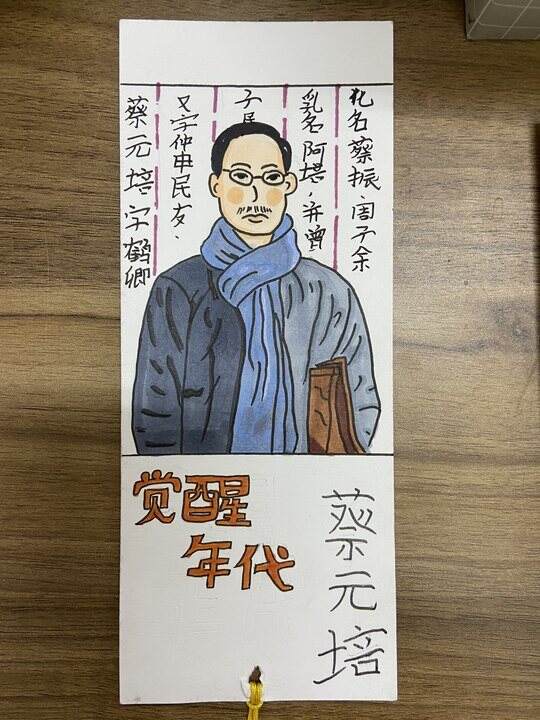 蔡元培字鹤卿
又字仲申民友、
子民
乳名阿培,并曾
化名蔡振、周子余
觉醒
年代
蔡元培